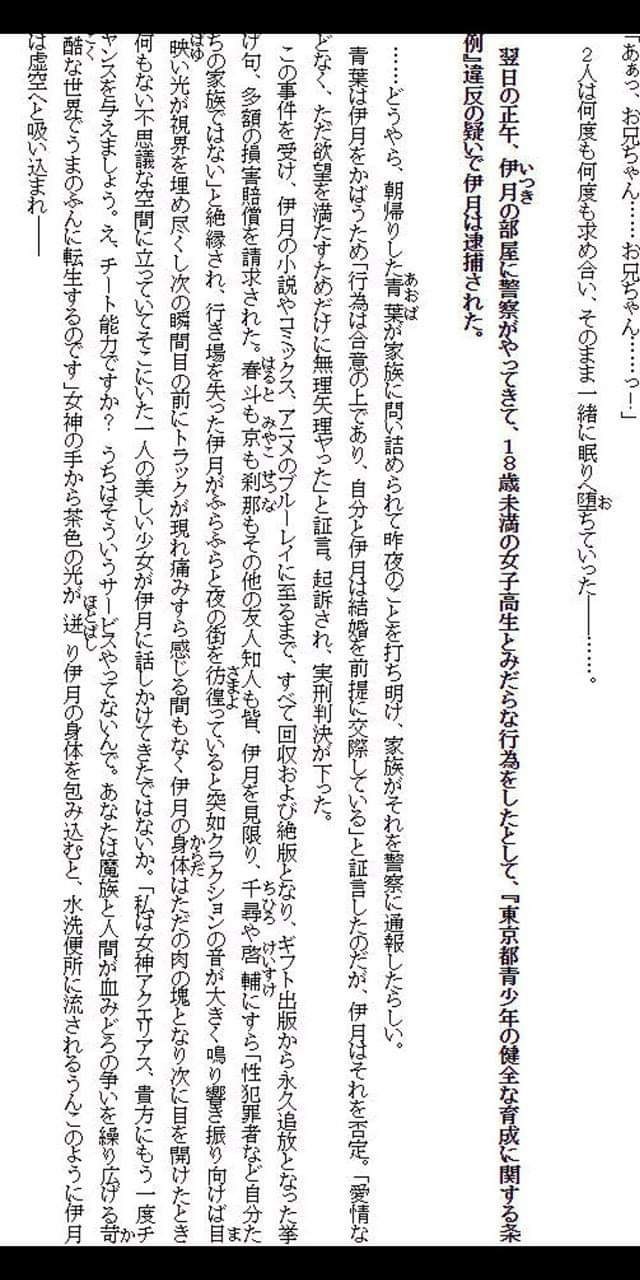 「あぁっ、お兄ちゃん……お兄ちゃん……っ！」
２人は何度も何度も求め合い、そのまま一緒に眠りへ堕ちていった――……。
翌日の正午、伊月の部屋に警察がやってきて、１８歳未満の女子高生とみだらな行為をしたとして、『東京都青少年の健全な育成に関する条
例』違反の疑いで伊月は逮捕された。
……どうやら、朝帰りした青葉が家族に問い詰められて昨夜のことを打ち明け、家族がそれを警察に通報したらしい。
青葉は伊月をかばうため「行為は合意の上であり、自分と伊月は結婚を前提に交際している」と証言したのだが、伊月はそれを否定。「愛情な
どなく、ただ欲望を満たすためだけに無理矢理やった」と証言。起訴され、実刑判決が下った。
この事件を受け、伊月の小説やコミックス、アニメのブルーレイに至るまで、すべて回収および絶版となり、ギフト出版から永久追放となった挙
げ句、多額の損害賠償を請求された。春斗も京も刹那もその他の友人知人も皆、伊月を見限り、千尋や啓輔にすら「性犯罪者など自分た
ちの家族ではない」と絶縁され、行き場を失った伊月がふらふらと夜の街を彷徨っていると突如クラクションの音が大きく鳴り響き振り向けば目
映い光が視界を埋め尽くし次の瞬間目の前にトラックが現れ痛みすら感じる間もなく伊月の身体はただの肉の塊となり次に目を開けたとき
何もない不思議な空間に立っていてそこにいた一人の美しい少女が伊月に話しかけてきたではないか。「私は女神アクエリアス、貴方にもう一度チ
ャンスを与えましょう。え、チート能力ですか？　うちはそういうサービスやってないんで。あなたは魔族と人間が血みどろの争いを繰り広げる苛
酷な世界でうまのふんに転生するのです」女神の手から茶色の光が迸り伊月の身体を包み込むと、水洗便所に流されるうんこのように伊月
は虚空へと吸い込まれ――